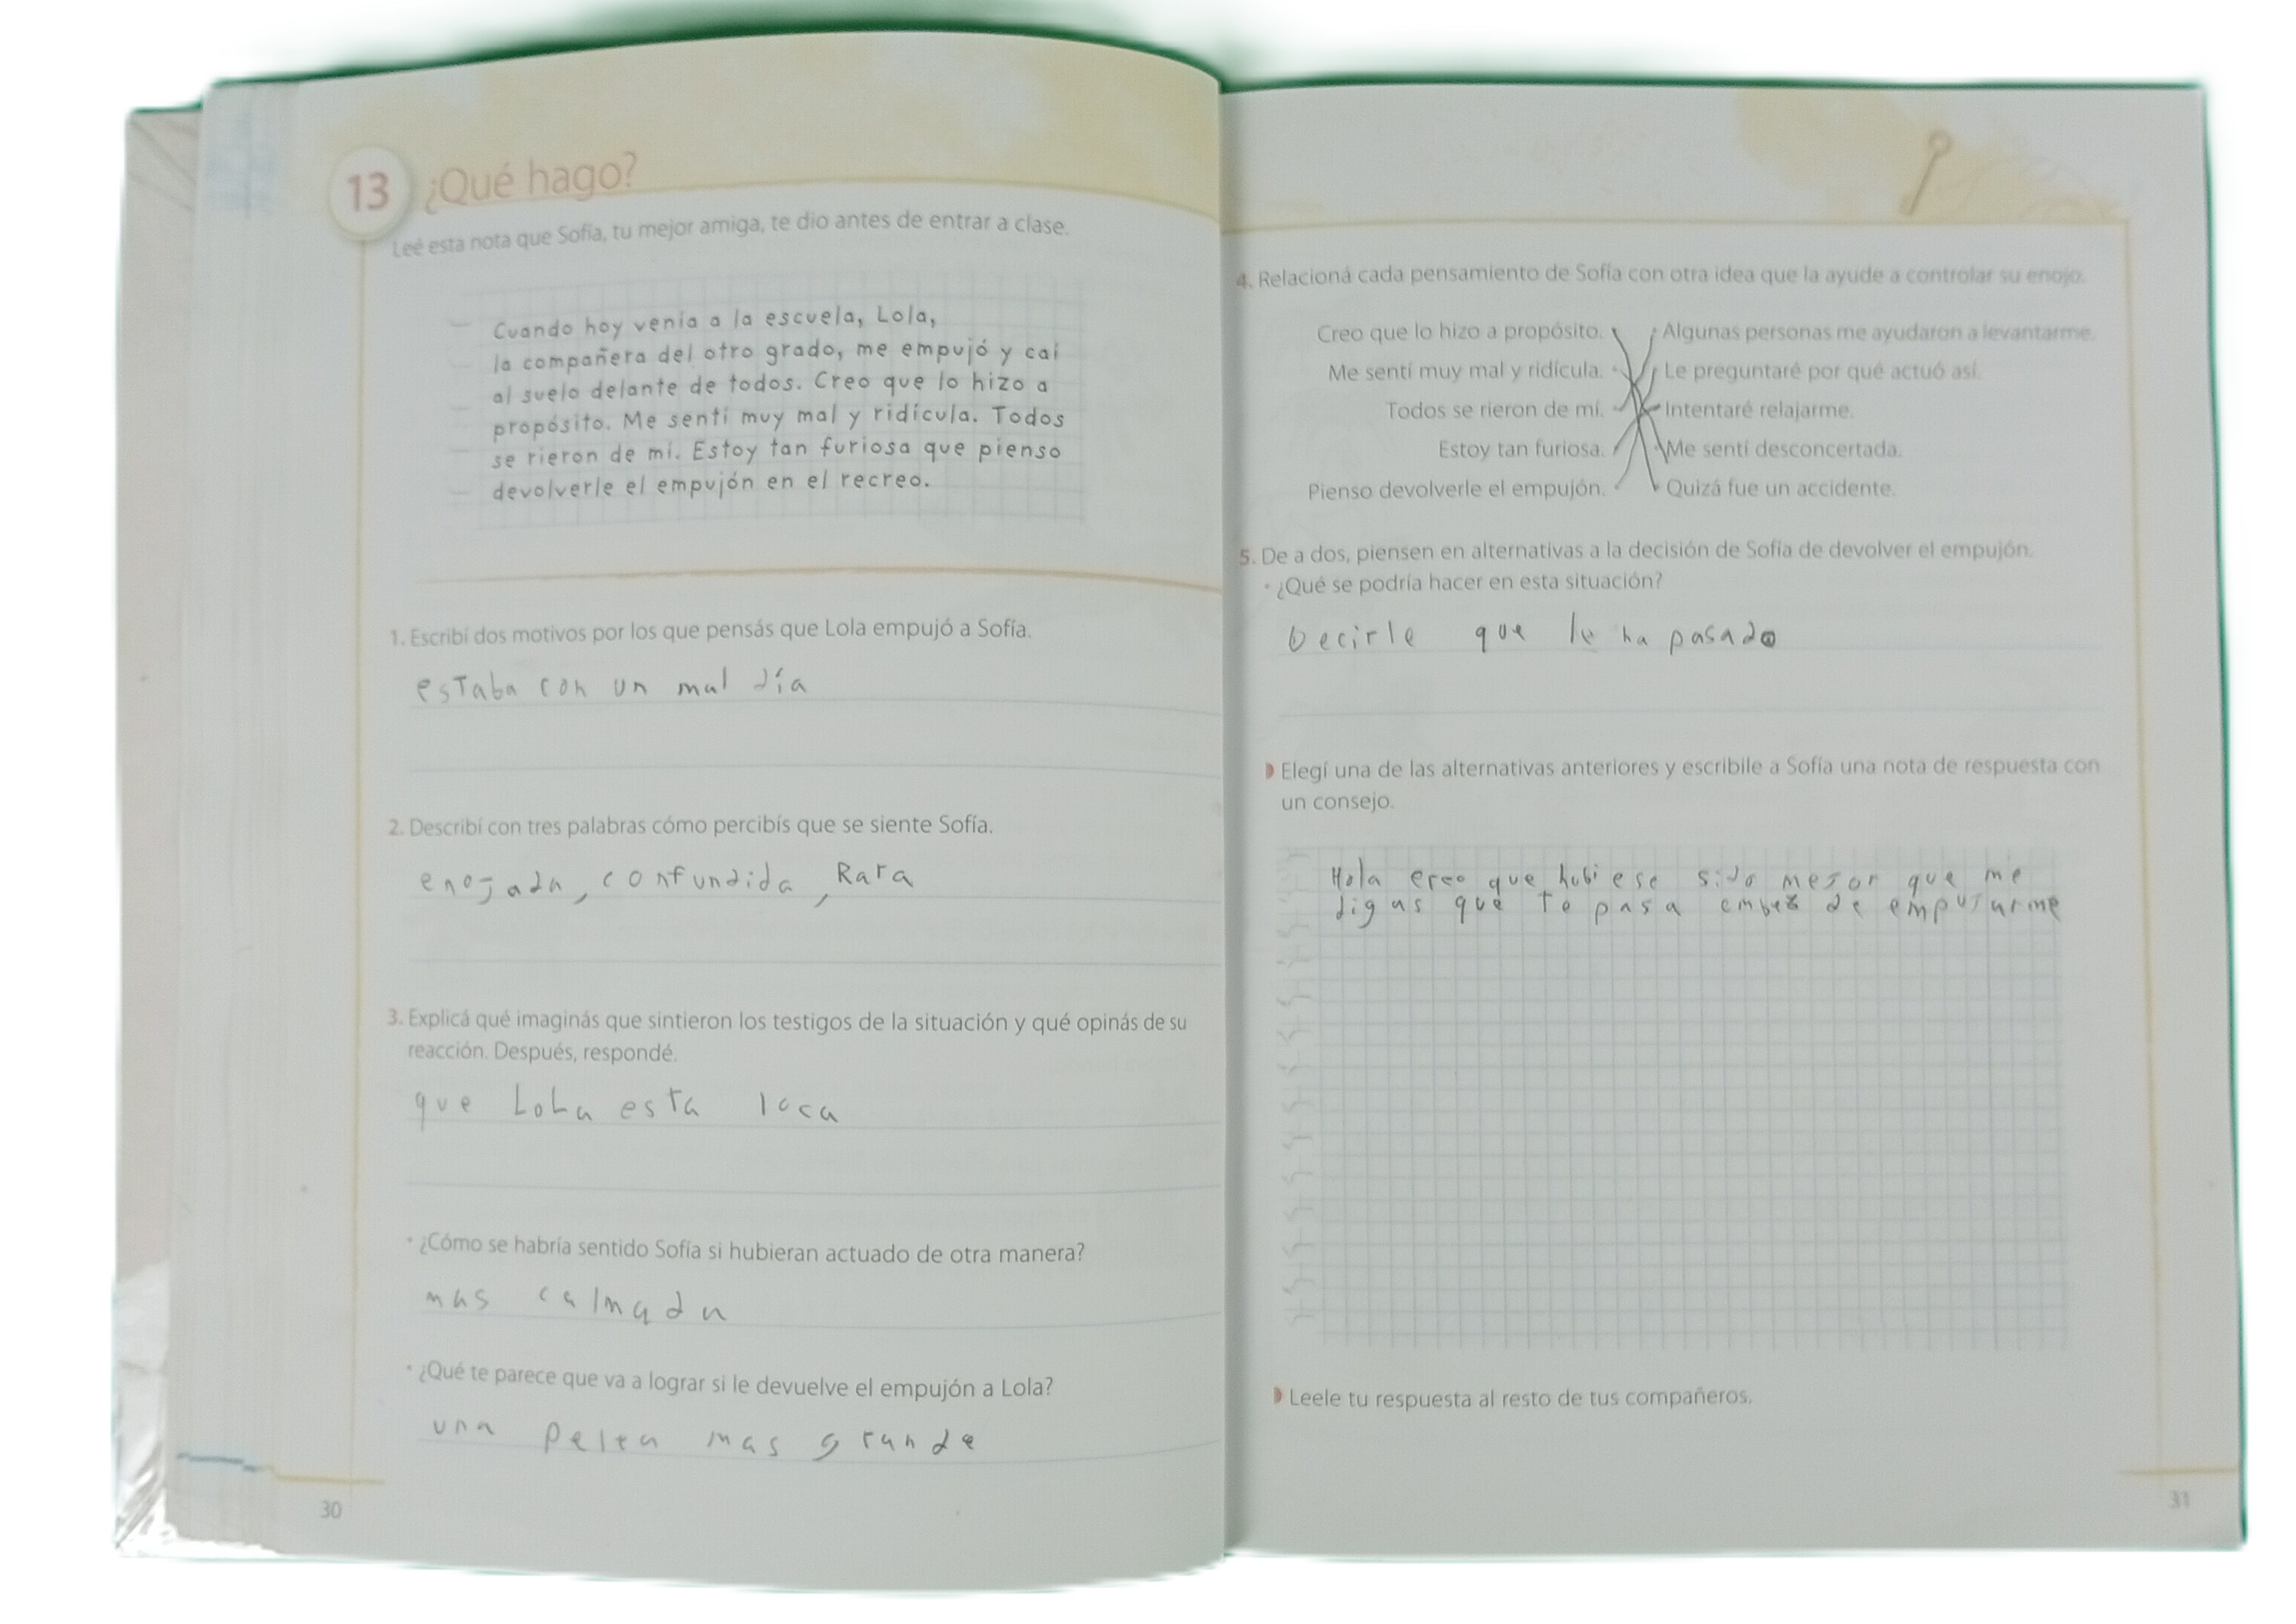 13 ¿Qué hago?
Leé esta nota que Sofía, tu mejor amiga, te dio antes de entrar a clase.
Cuando hoy venía a la escuela, Lola,
la compañera del otro grado, me empujó y caí
al suelo delante de todos. Creo que lo hizo a
propósito. Me sentí muy mal y ridícula. Todos
se rieron de mí. Estoy tan furiosa que pienso
devolverle el empujón en el recreo.
1. Escribí dos motivos por los que pensás que Lola empujó a Sofía.
estaba con un mal día
2. Describí con tres palabras cómo percibís que se siente Sofía.
enojada, confundida, Rara
3. Explicá qué imaginás que sintieron los testigos de la situación y qué opinás de su
reacción. Después, respondé.
que LoLa esta loca
• ¿Cómo se habría sentido Sofía si hubieran actuado de otra manera?
mas calmada
• ¿Qué te parece que va a lograr si le devuelve el empujón a Lola?
una pelea mas grande
30
4. Relacioná cada pensamiento de Sofía con otra idea que la ayude a controlar su enojo.
Creo que lo hizo a propósito. Algunas personas me ayudaron a levantarme.
Me sentí muy mal y ridícula. Le preguntaré por qué actuó así.
Todos se rieron de mí. Intentaré relajarme.
Estoy tan furiosa. Me sentí desconcertada.
Pienso devolverle el empujón. Quizá fue un accidente.
5. De a dos, piensen en alternativas a la decisión de Sofía de devolver el empujón.
• ¿Qué se podría hacer en esta situación?
Decirle que le ha pasado
Elegí una de las alternativas anteriores y escribile a Sofía una nota de respuesta con
un consejo.
Hola creo que hubiese sido mejor que me
digas que te pasa embez de empujarme
Leele tu respuesta al resto de tus compañeros.
31